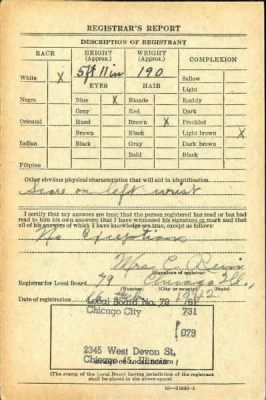 REGISTRAR'S REPORT
DESCRIPTION OF REGISTRANT
RACE HEIGHT (Approx.) WEIGHT (Approx.) COMPLEXION
White X 5 ft 11 in 190 Sallow
Light
EYES HAIR
Negro Blue X Blonde Ruddy
Gray Red Dark
Oriental Hazel Brown X Freckled
Brown Black Light brown X
Indian Black Gray Dark brown
Bald Black
Filipino
Other obvious physical characteristics that will aid in identification
Scare on left wrist
I certify that my answers are true; that the person registered has read or has had read to him his own answers; that I have witnessed his signature or mark and that all of his answers of which I have knowledge are true, except as follows:
No Exceptions
Mrs. C.
(Signature of registrar)
Registrar for Local Board 79 Chicago Ill.
(Number) (City or county) (State)
Date of registration 1942
Local Board No. 79
Chicago City 731
079
2345 West Devon St,
Chicago 45, Illinois
(The stamp of the Local Board having jurisdiction of the registrant shall be placed in the above space)